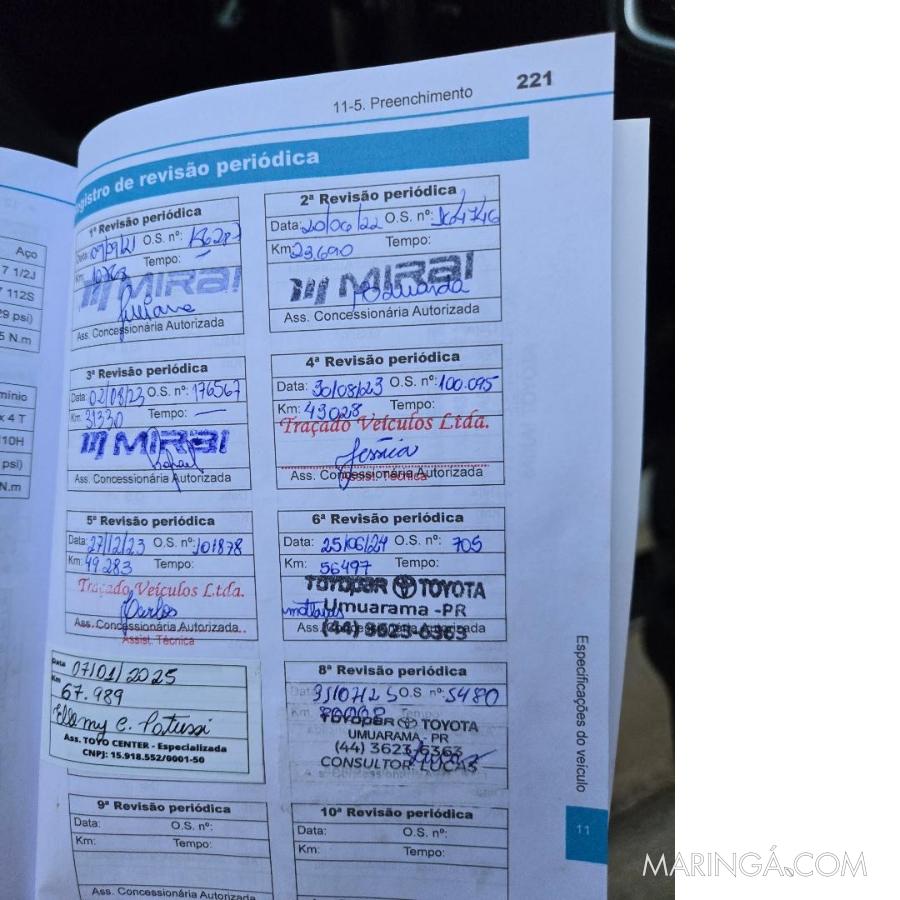 11-5. Preenchimento 221
gistro de revisão periódica
Aço
7 1/2J
112S
29 psi)
5 N.m
mínio
x 4 T
110H
psi)
N.m
1ª Revisão periódica
Data: 09/09/21 O.S. nº:
Km:
Tempo: —
MIRAI
Juliane
Ass. Concessionária Autorizada
2ª Revisão periódica
Data: 20/06/22 O.S. nº: 164746
Km: 23.690 Tempo:
MIRAI
Eduarda
Ass. Concessionária Autorizada
3ª Revisão periódica
Data: 02/08/23 O.S. nº: 176567
Km: 31330 Tempo: —
MIRAI
Rafael
Ass. Concessionária Autorizada
4ª Revisão periódica
Data: 30/08/23 O.S. nº: 100.095
Km: 43028 Tempo:
Traçado Veículos Ltda.
Jéssica
Ass. Concessionária Autorizada
Assist. Técnica
5ª Revisão periódica
Data: 27/12/23 O.S. nº: 101878
Km: 49 283 Tempo:
Traçado Veículos Ltda.
Carlos
Ass. Concessionária Autorizada
Assist. Técnica
6ª Revisão periódica
Data: 25/06/24 O.S. nº: 705
Km: 56497 Tempo:
TOYOPAR TOYOTA
Umuarama -PR
(44) 3623-6363
Ass. Concessionária Autorizada
Data 07/01/2025
Km 67.989
Ass. TOYO CENTER - Especializada
CNPJ: 15.918.552/0001-50
8ª Revisão periódica
Data: O.S. nº: 5480
Km: Tempo:
TOYOPAR TOYOTA
UMUARAMA - PR
(44) 3623-6363
CONSULTOR LUCAS
9ª Revisão periódica
Data: O.S. nº:
Km: Tempo:
Ass. Concessionária Autorizada
10ª Revisão periódica
Data: O.S. nº:
Km: Tempo:
Ass. Concessionária Autorizada
Especificações do veículo
11
MARINGÁ.COM